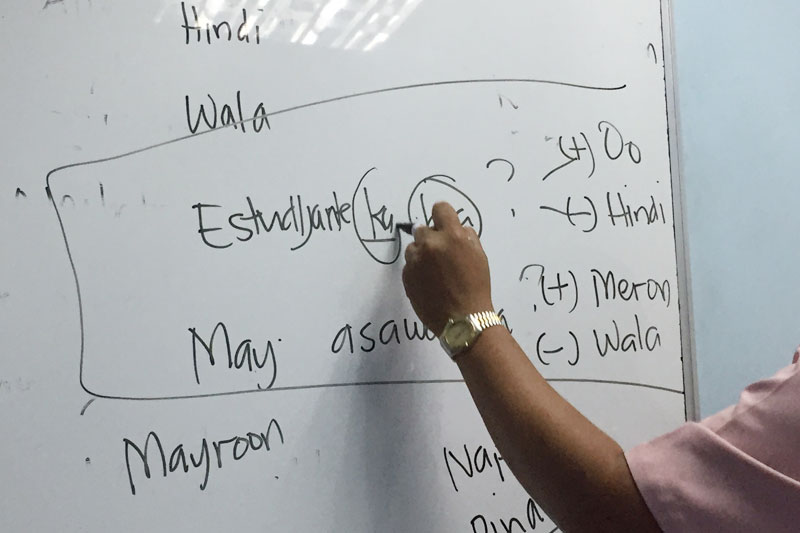 Hindi
Wala
Estudyante ka ? (+) Oo
(-) Hindi
May ? (+) Meron
(-) Wala
Mayroon